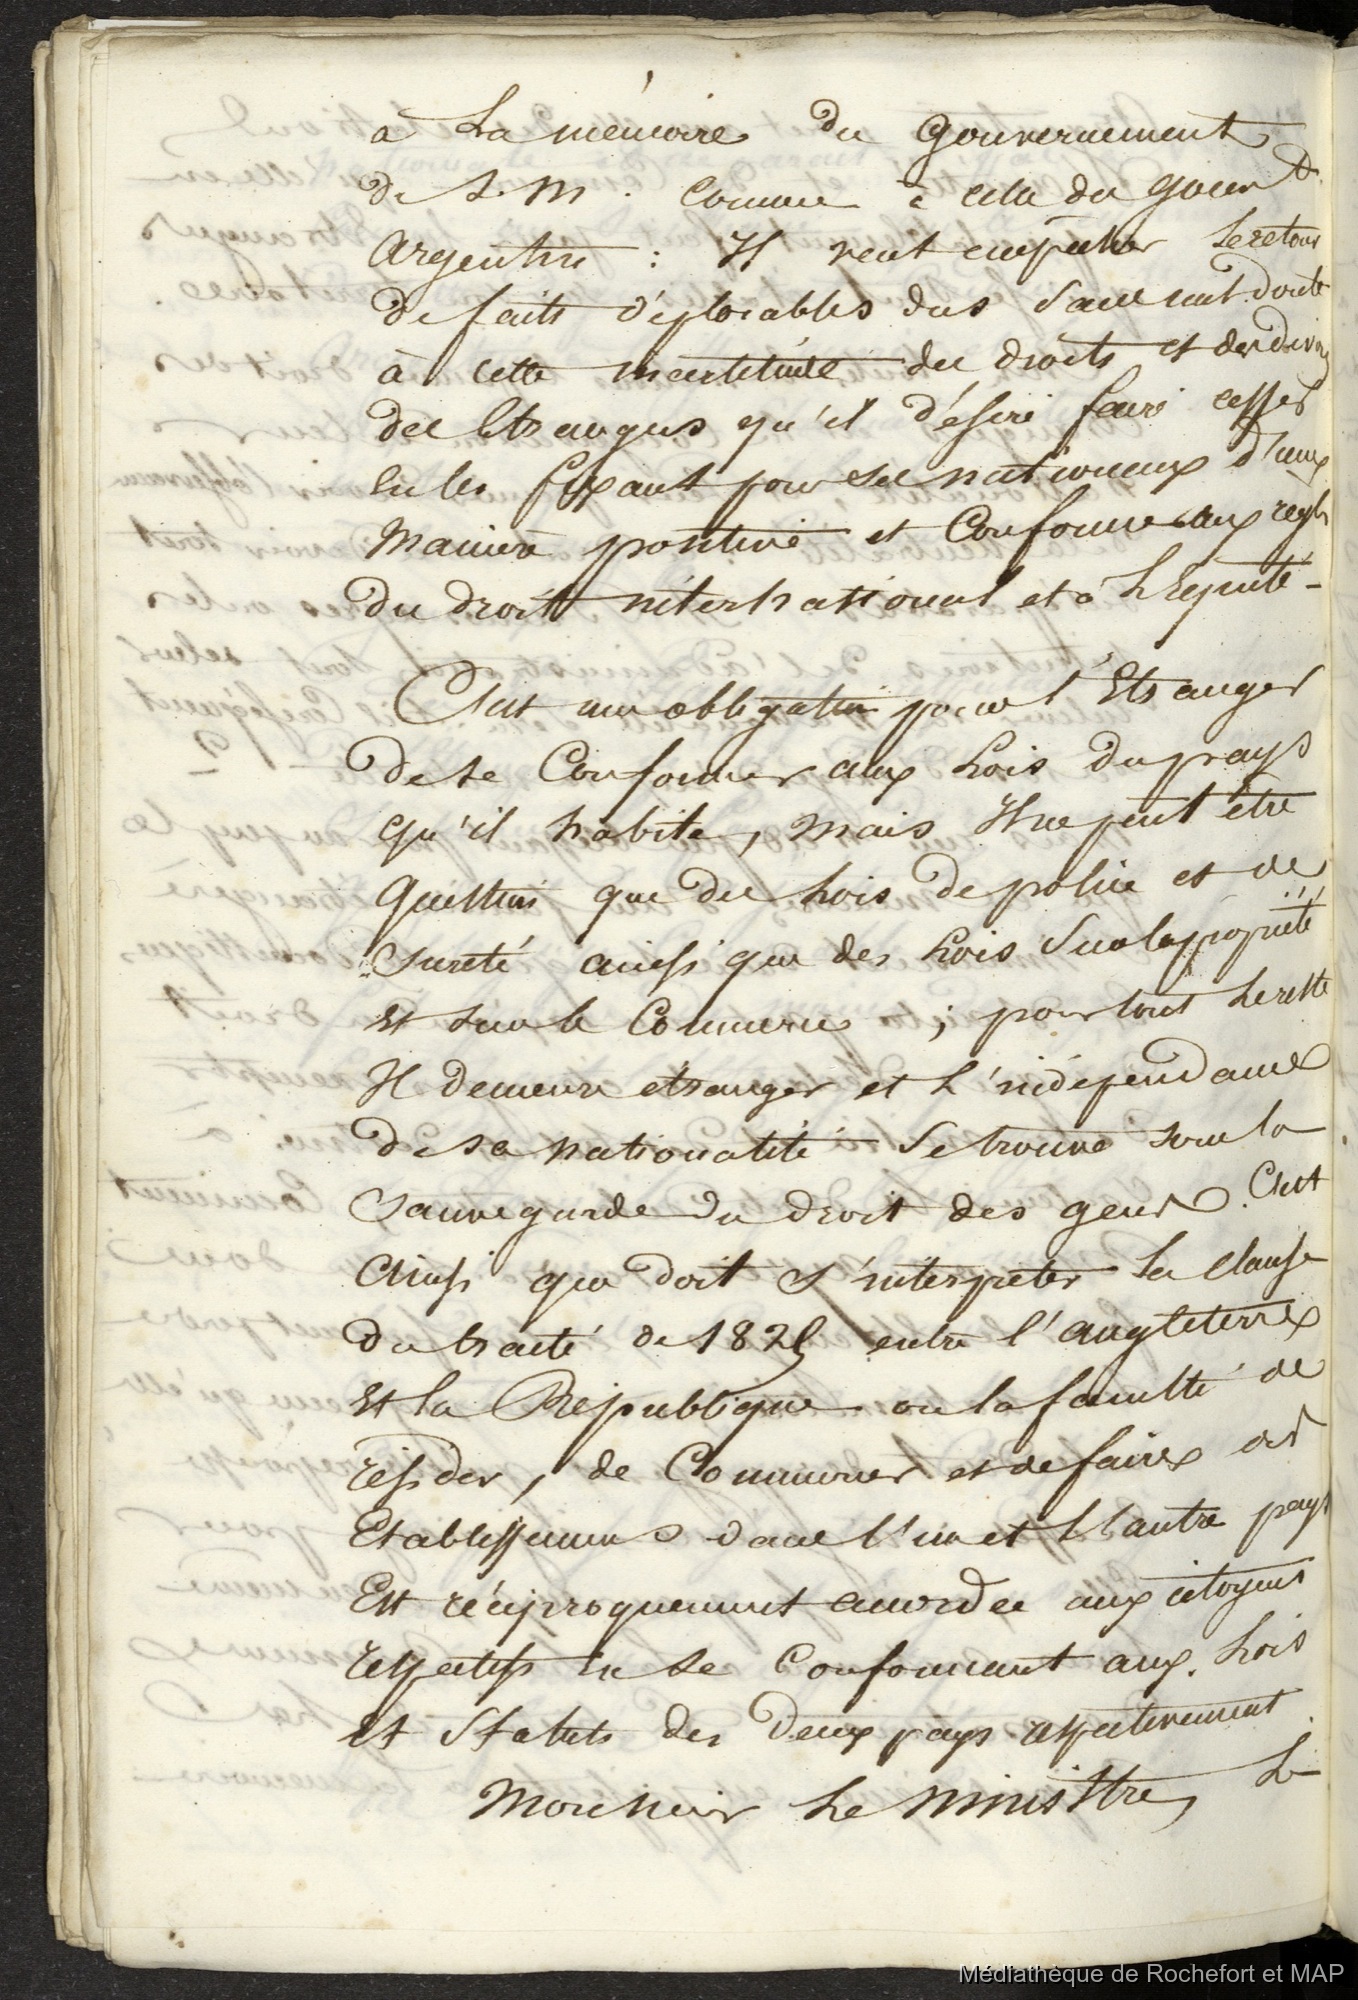 à La mémoire du Gouvernement
de S. M. comme à celle du Gouvert
argentin : Il veut empêcher le retour
de faits déplorables dus sans nul doute
à cette incertitude des droits et des devoirs
des Etrangers qu'il désire faire cesser
en les fixant pour ses nationaux d'une
manière positive et conforme aux regles
du droit international et à L'Equité –
C'est une obligation pour l'Etranger
de se Conformer aux Lois du pays
qu'il habite, mais Il ne peut être
question que des Lois de police et de
sureté ainsi que des Lois sur la propriété
et sur le Commerce ; pour tout le reste
Il demeure etranger et L'indépendance
de sa nationalité se trouve sous la
sauvegarde du droit des gens. C'est
ainsi que doit s'interpreter La Clause
du traité de 1825 entre l'angleterre
et la République ou la faculté de
résider, de Commercer et de faire des
Etablissemens dans l'un et L'autre pays
Est réciproquement accordée aux citoyens
respectifs en se conformant aux Lois
et Statuts des deux pays respectivement.
Monsieur Le Ministre, Le
Médiathèque de Rochefort et MAP